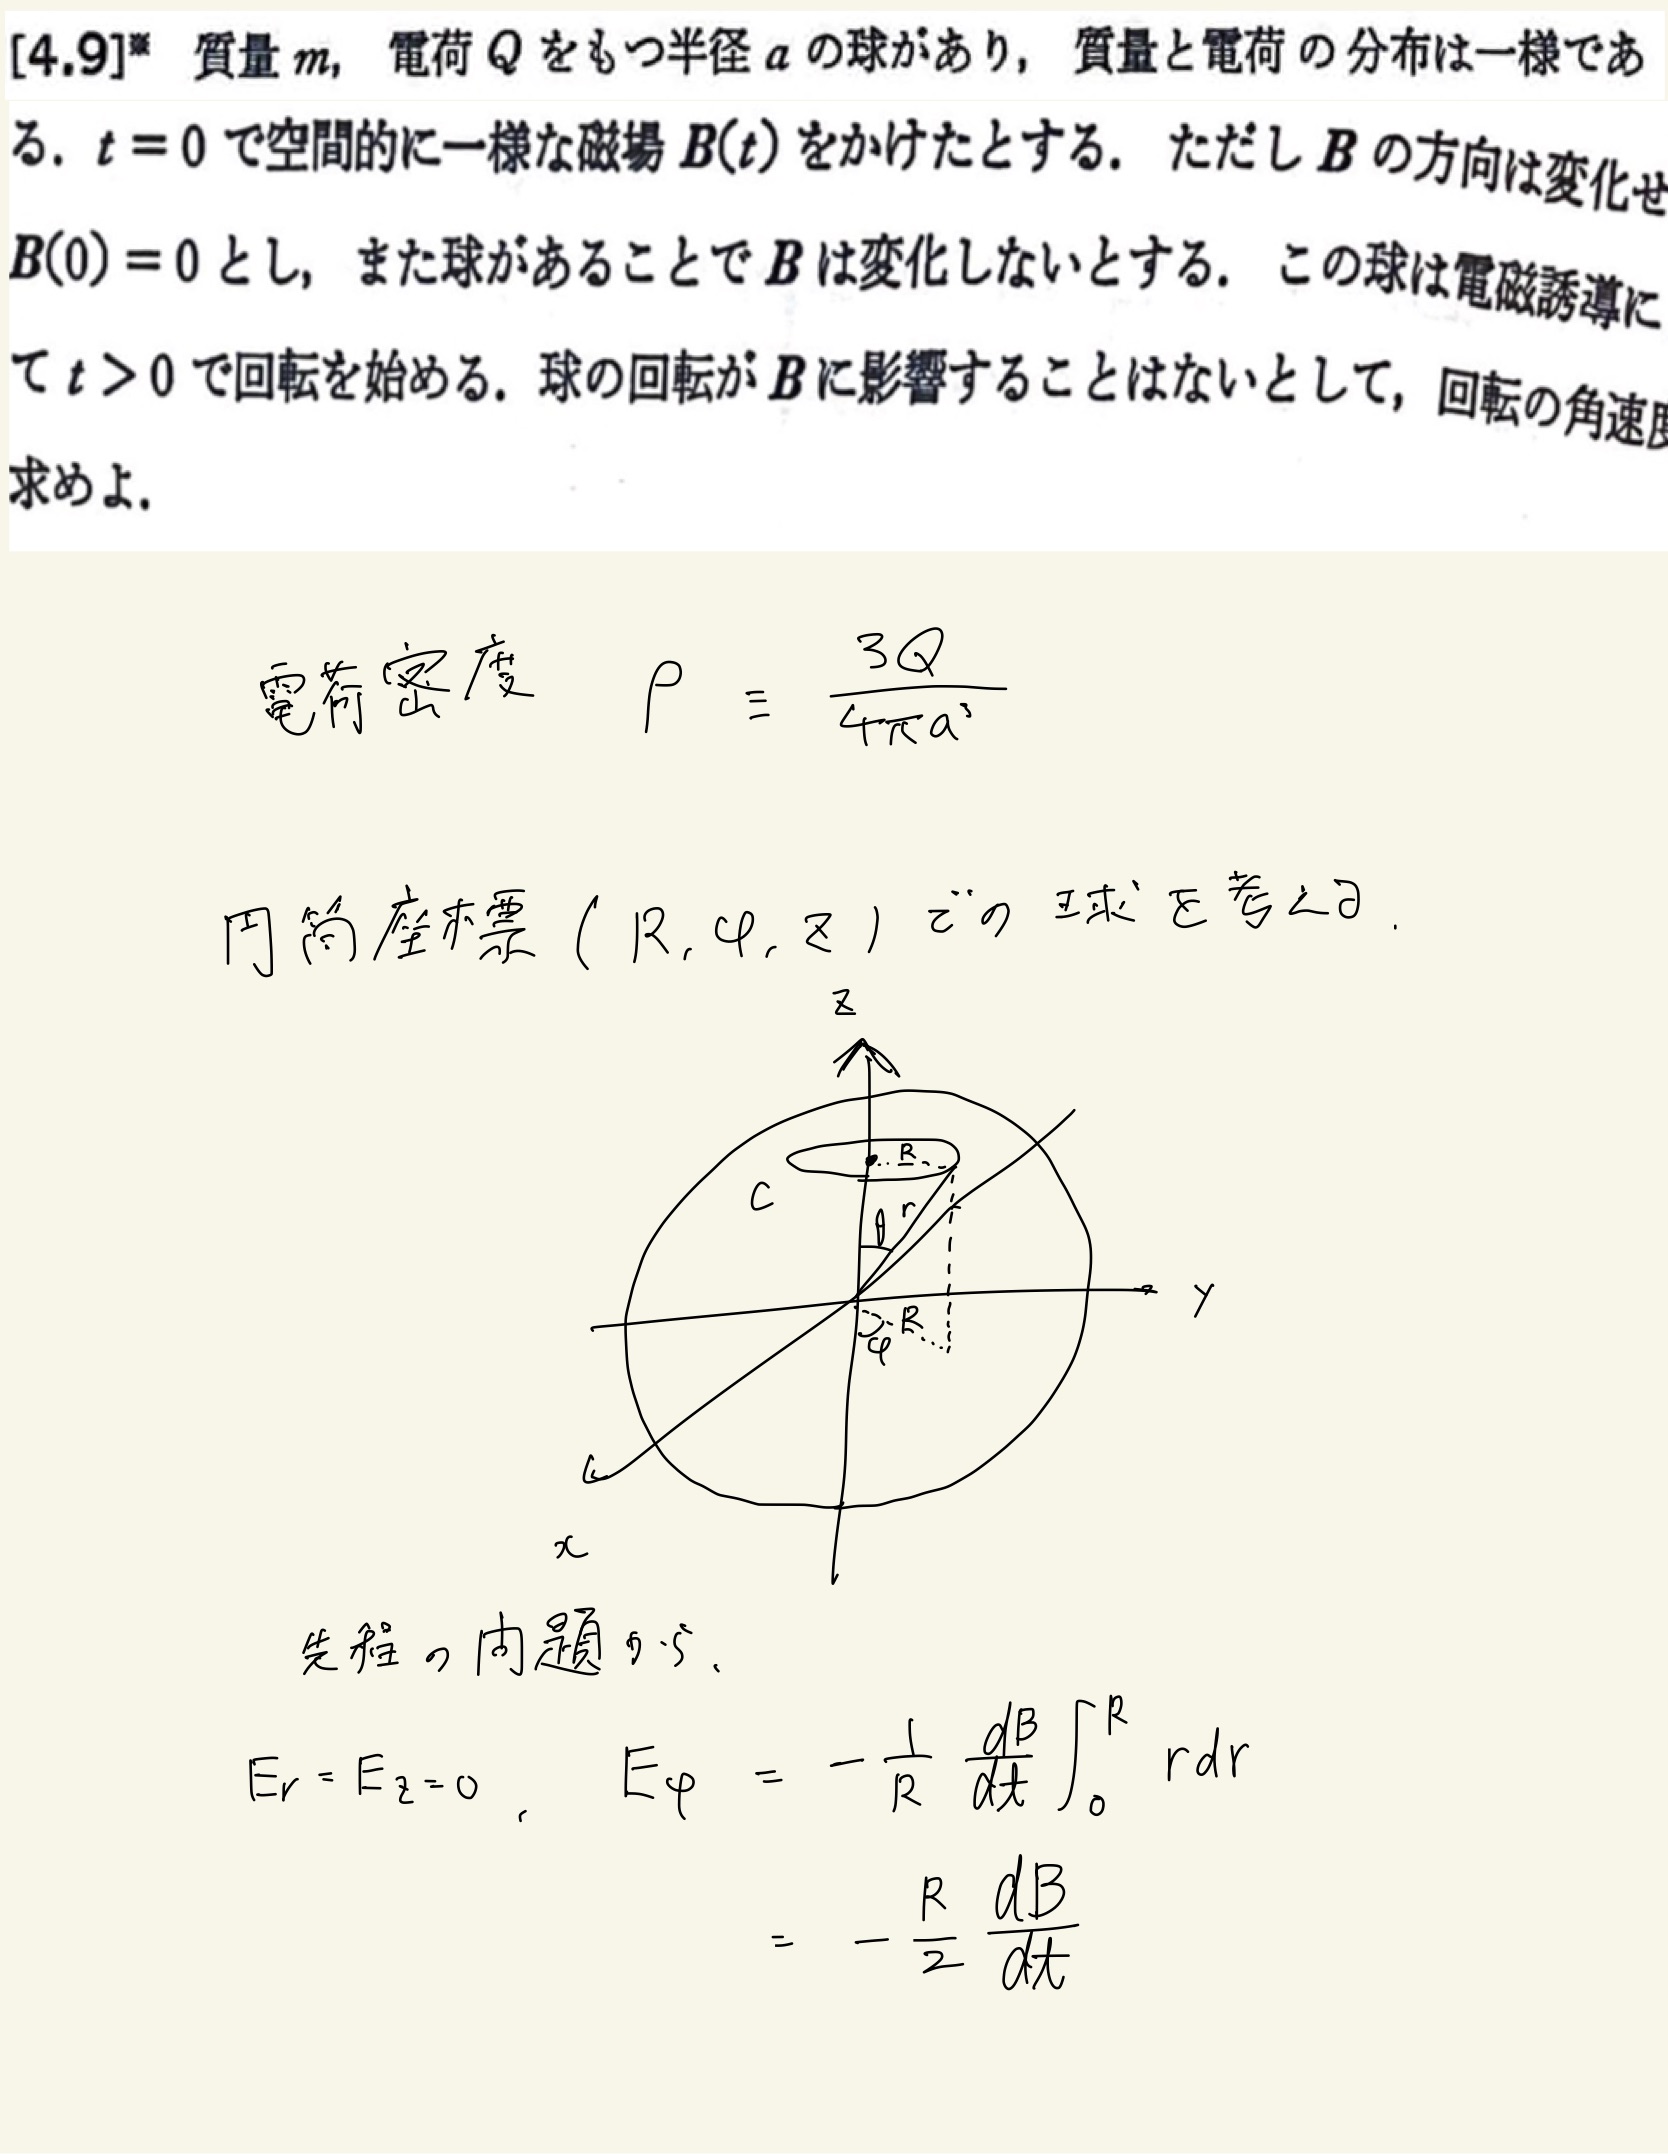 [4.9]※ 質量 m, 電荷 Q をもつ半径 a の球があり, 質量と電荷 の 分布は一様であ
る. t = 0 で空間的に一様な磁場 B(t) をかけたとする. ただし B の方向は変化せ
B(0) = 0 とし, また球があることで B は変化しないとする. この球は電磁誘導に
て t > 0 で回転を始める. 球の回転が B に影響することはないとして, 回転の角速度
求めよ.
電荷密度 ρ ≡ 3Q / 4πa³
円筒座標 (R, φ, z) での球を考える.
z
R
C
θ r
y
R
φ
x
先程の問題から,
Er = Ez = 0, Eφ = - 1/R dB/dt ∫₀ᴿ rdr
= - R/2 dB/dt